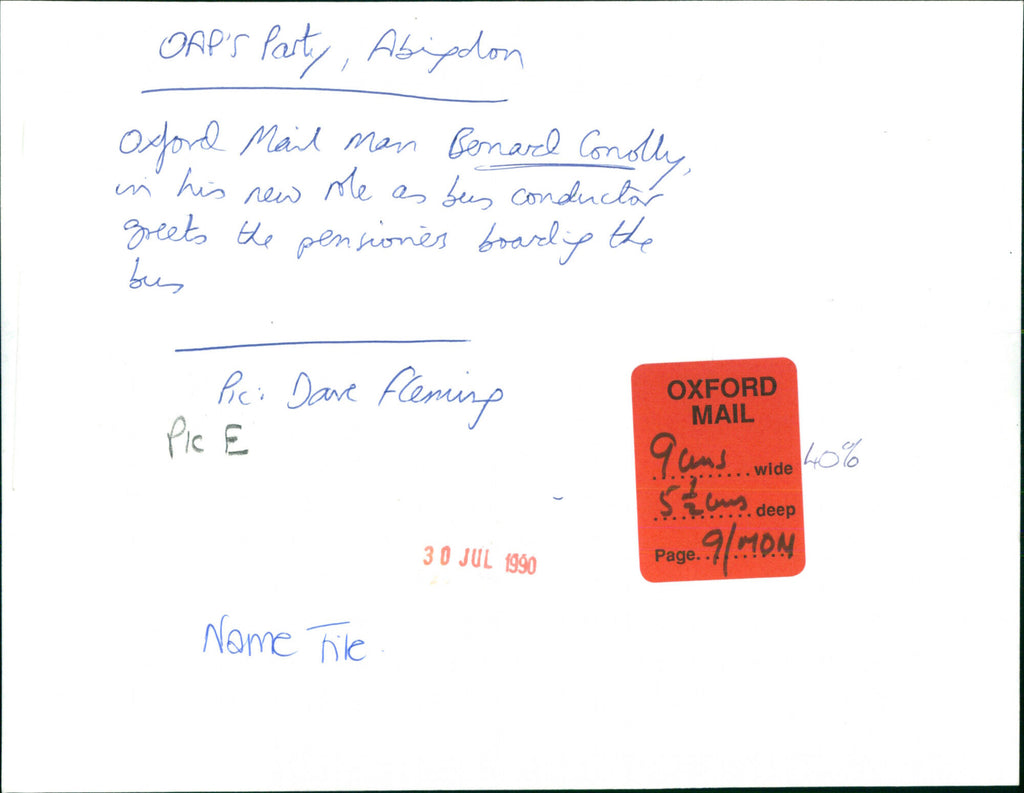 OAP'S Party, Abingdon
Oxford Mail man Bernard Conolly,
in his new role as bus conductor
greets the pensioners boarding the
bus
Pic: Dave Fleming
Pic E
OXFORD
MAIL
9 cms wide 40%
5 1/2 cms deep
Page 9/MON
30 JUL 1990
Name File